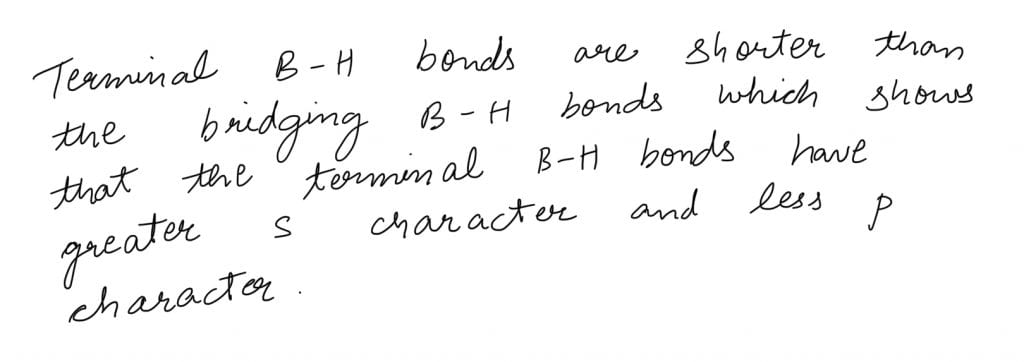 Terminal B-H bonds are shorter than
the bridging B-H bonds which shows
that the terminal B-H bonds have
greater s character and less p
character.